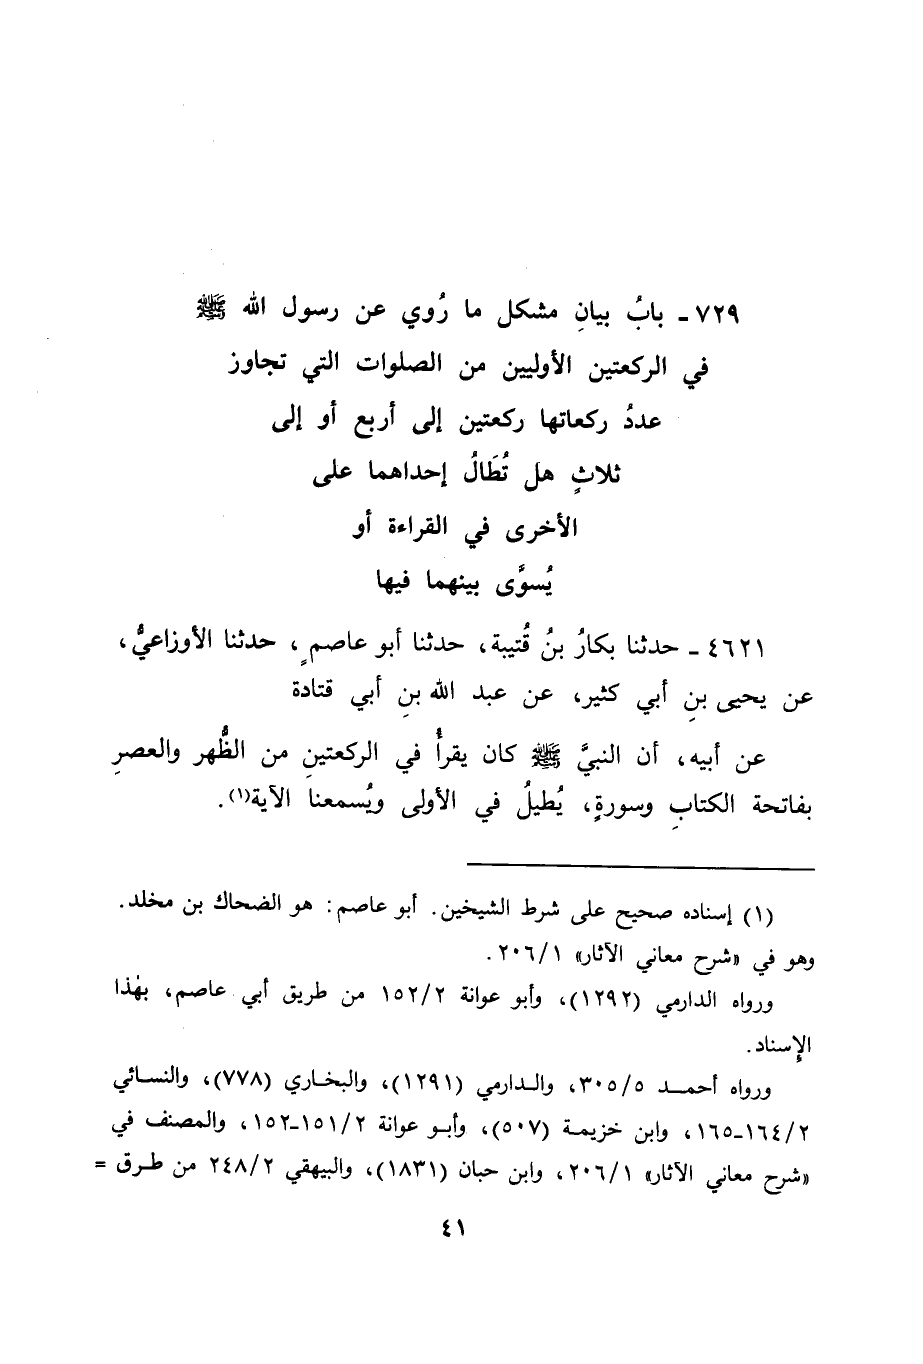 ٧٢٩ ـ بابُ بيانِ مشكل ما رُوي عن رسول الله ﷺ
في الركعتين الأوليين من الصلوات التي تجاوز
عددُ ركعاتها ركعتين إلى أربع أو إلى
ثلاثٍ هل تُطَالُ إحداهما على
الأخرى في القراءة أو
يُسوَّى بينهما فيها
٤٦٢١ ـ حدثنا بكارُ بنُ قُتيبة، حدثنا أبو عاصمٍ، حدثنا الأوزاعيُّ،
عن يحيى بنِ أبي كثير، عن عبد الله بنِ أبي قتادة
عن أبيه، أن النبيَّ ﷺ كان يقرأُ في الركعتينِ من الظُّهر والعصرِ
بفاتحة الكتابِ وسورةٍ، يُطيلُ في الأولى ويُسمعنا الآية(١).
(١) إسناده صحيح على شرط الشيخين. أبو عاصم: هو الضحاك بن مخلد.
وهو في «شرح معاني الآثار» ٢٠٦/١.
ورواه الدارمي (١٢٩٢)، وأبو عوانة ١٥٢/٢ من طريق أبي عاصم، بهٰذا
الإسناد.
ورواه أحمــد ٣٠٥/٥، والـدارمي (١٢٩١)، والبخـاري (٧٧٨)، والنسـائي
١٦٤/٢ـ١٦٥، وابن خزيمـة (٥٠٧)، وأبـو عوانة ١٥١/٢ـ١٥٢، والمصنف في
«شرح معاني الآثار» ٢٠٦/١، وابن حبان (١٨٣١)، والبيهقي ٢٤٨/٢ من طـرق =
٤١